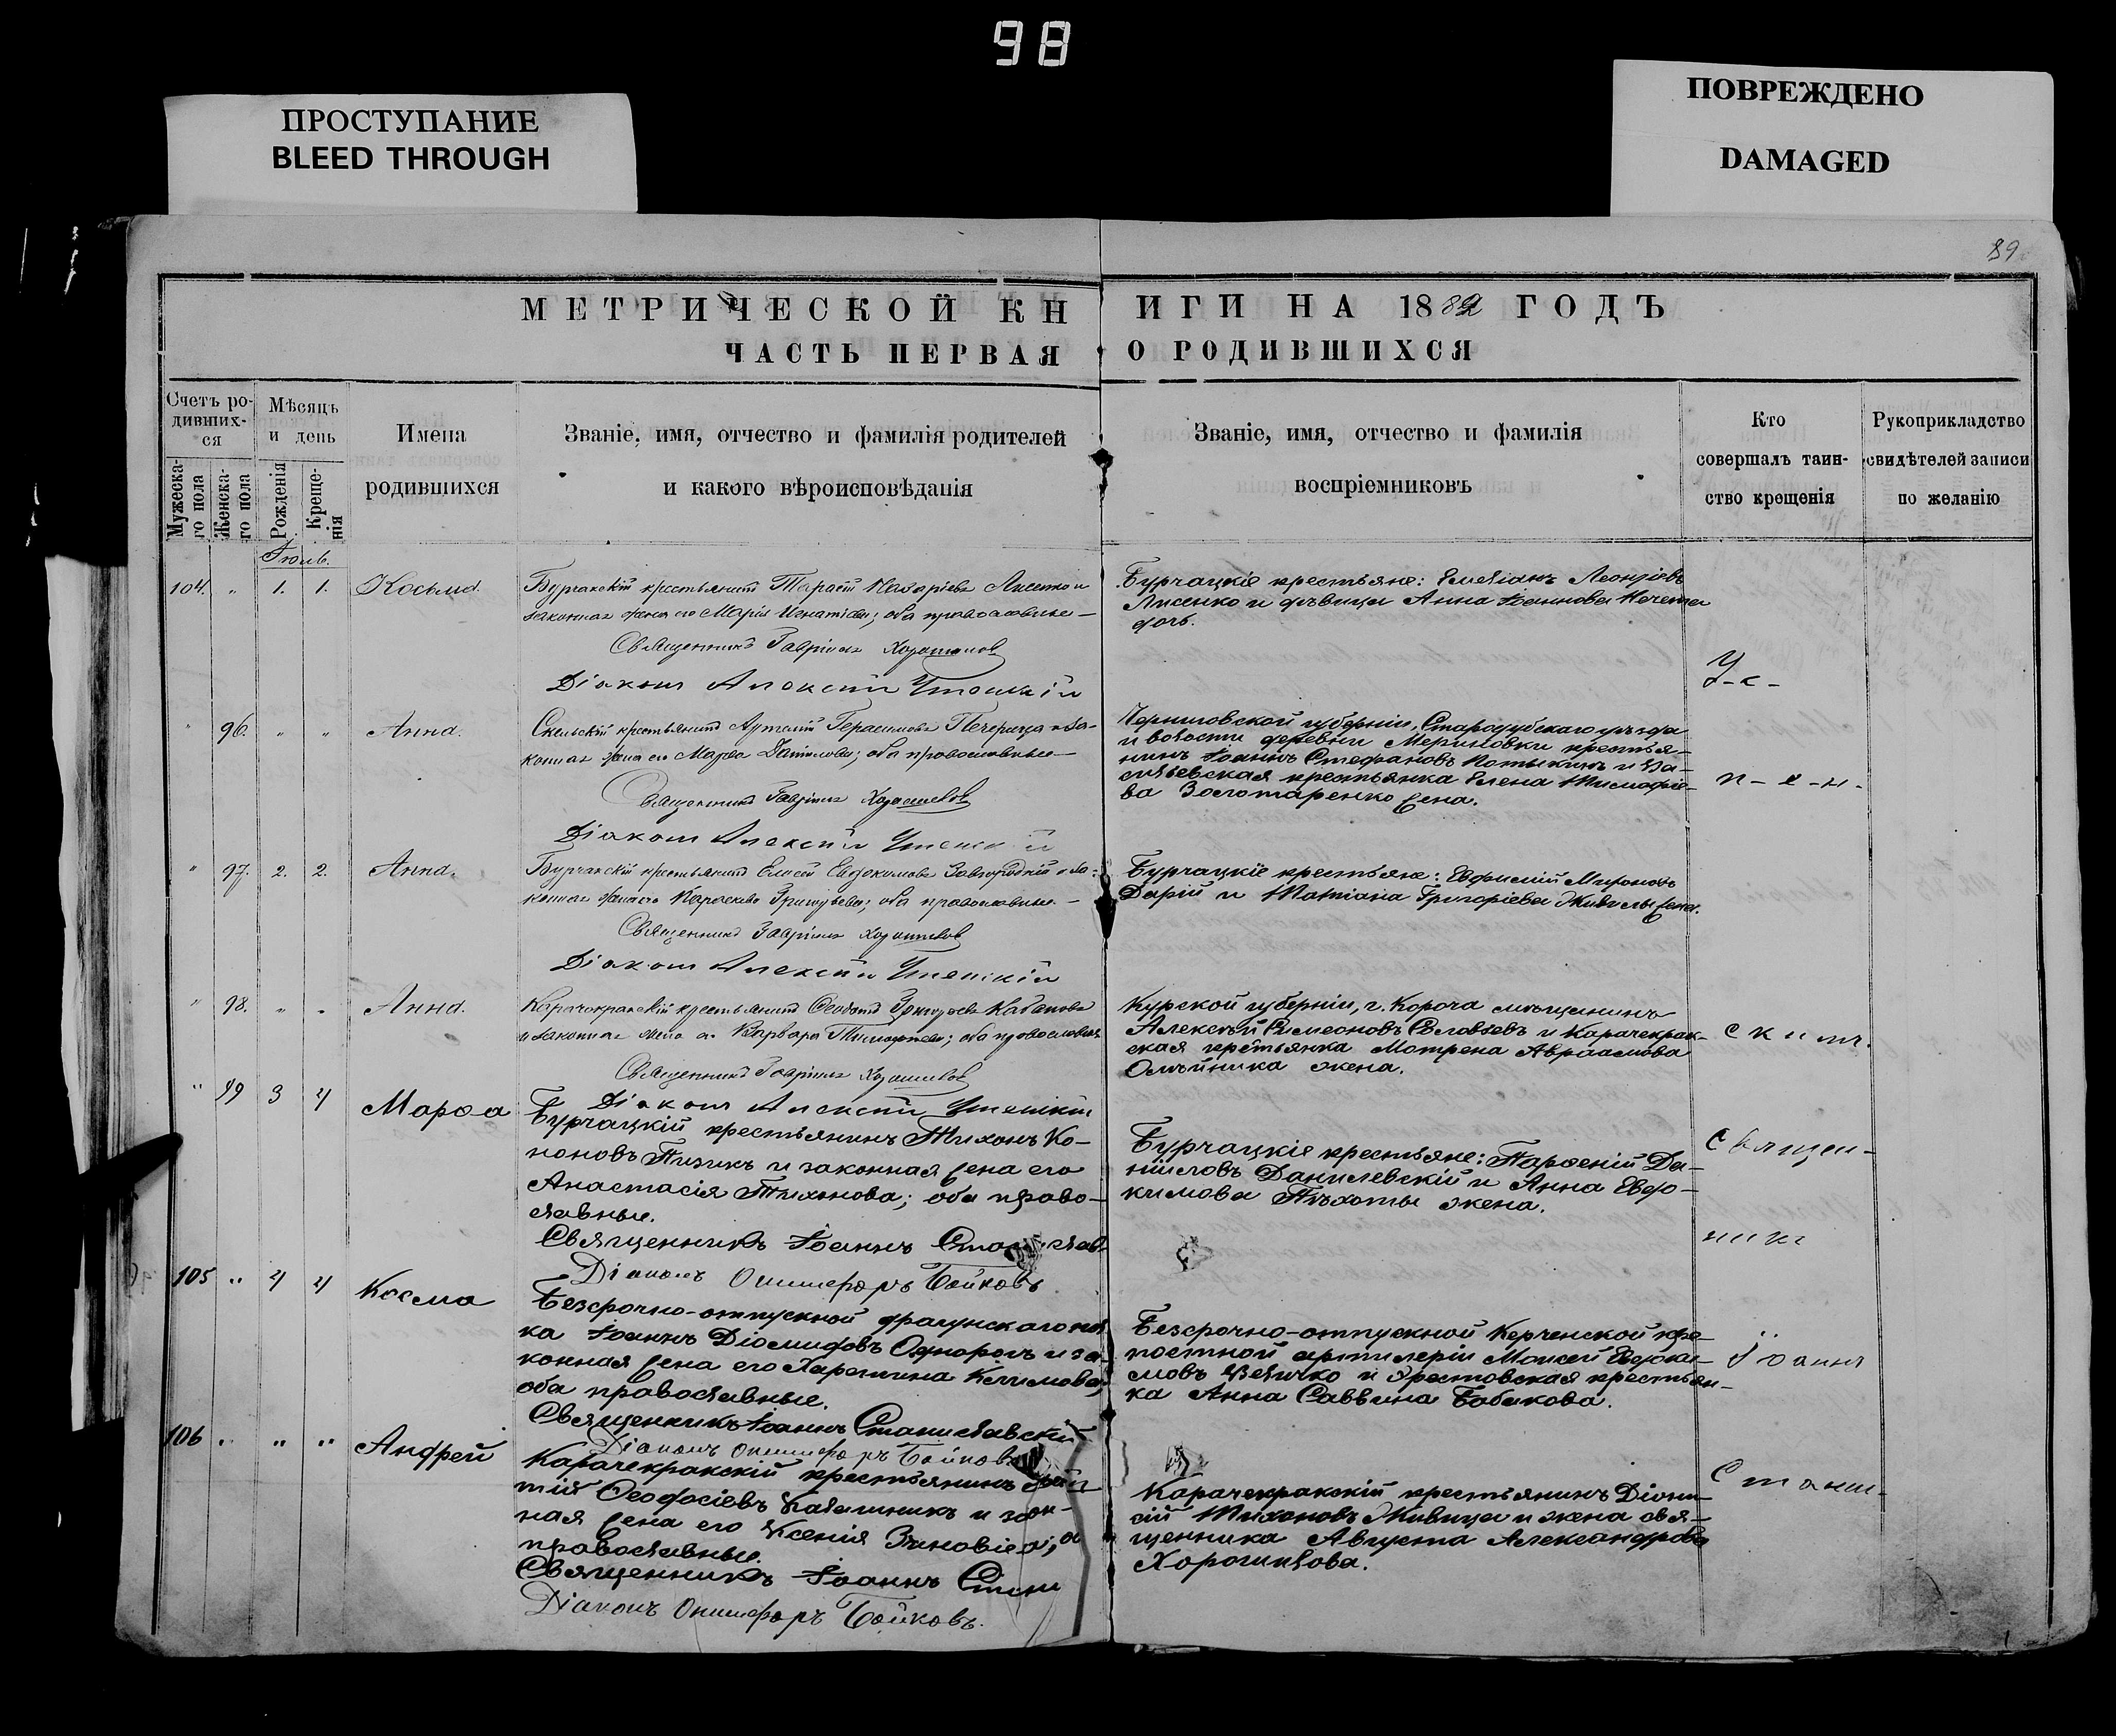 98
ПРОСТУПАНИЕ
BLEED THROUGH
ПОВРЕЖДЕНО
DAMAGED
89
МЕТРИЧЕСКОЙ КНИГИ НА 1882 ГОДЪ
ЧАСТЬ ПЕРВАЯ О РОДИВШИХСЯ
Счетъ ро-
дивших-
ся
Мужеска-
го пола
Женска-
го пола
Мѣсяцъ
и день
Рожденія
Креще-
нія
Имена
родившихся
Званіе, имя, отчество и фамилія родителей
и какого вѣроисповѣданія
Званіе, имя, отчество и фамилія
воспріемниковъ
Кто
совершалъ таин-
ство крещенія
Рукоприкладство
свидѣтелей записи
по желанію
Іюль.
104. " 1. 1. Косьма.
Бурчакскій крестьянинъ Тарасій Назаріевъ Лисенко и
законная жена его Марія Игнатіева; оба православные —
Священникъ Гавріилъ
Діаконъ Алексій
Бурчацкіе крестьяне: Емеліанъ Леонтіевъ
Лисенко и дѣвица Анна Іоаннова
дочь.
" 96. " " Анна.
Скельскій крестьянинъ Артемій Герасимовъ Печерица и за-
конная жена его Марѳа Данилова; оба православные —
Священникъ Гавріилъ
Діаконъ Алексій
Черниговской губерніи, Стародубскаго уѣзда
и волости деревни Мериновки крестья-
нинъ Іоаннъ Стефановъ Потыкинъ и Ва-
сильевская крестьянка Елена Тимофіе-
ва Золотаренко жена.
У-с-
п-е-н-
" 97. 2. 2. Анна.
Бурчакскій крестьянинъ Елисей Евдокимовъ Завгородній и за-
конная жена его Параскева Григорьева; оба православные —
Священникъ Гавріилъ
Діаконъ Алексій
Бурчацкіе крестьяне: Евфимій Мироновъ
Дарій и Татіана Григоріева жена.
" 98. " " Анна.
Карачокракскій крестьянинъ Ѳеодотъ Григорьевъ Кабановъ
и законная жена его Варвара Тимофтеева; оба православные
Священникъ Гавріилъ
Діаконъ Алексій
Курской губерніи, г. Короча мѣщанинъ
Алексѣй Симеоновъ Соловьевъ и Карачекрак-
ская крестьянка Мотрена Авраамова
Олѣйника жена.
с к и мъ.
" 99 3 4 Марѳа
Бурчацкій крестьянинъ Тихонъ Ко-
ноновъ Пизикъ и законная жена его
Анастасія Тихонова; оба право-
славные.
Священникъ Іоаннъ
Діаконъ Онисифоръ Бойковъ
Бурчацкіе крестьяне: Парѳеній Да-
ніиловъ Данилевскій и Анна Евдо-
кимова Пѣхоты жена.
Священ-
никъ
105 " 4 4 Косма
Безсрочно-отпускной драгунскаго пол
ка Іоаннъ Діомидовъ Однорогъ и за-
конная жена его Харитина Климова;
оба православные.
Священникъ Іоаннъ Станиславскій
Діаконъ Онисифоръ Бойковъ
Безсрочно-отпускной Керченской кре-
постной артилеріи Моисей Евдоки-
мовъ Величко и Орестовская крестьян-
ка Анна Саввина Бабакова.
Іоаннъ
106 " " " Андрей
Карачекракскій крестьянинъ
тій Ѳеодосіевъ Кабашникъ и зак
ная жена его Ксенія Зиновіева;
православные.
Священникъ Іоаннъ Стани
Діаконъ Онисифоръ Бойковъ.
Карачекракскій крестьянинъ Діони-
сій Тихоновъ Живица и жена свя-
щенника Августа Александрова
Хорошилова.
Стани-